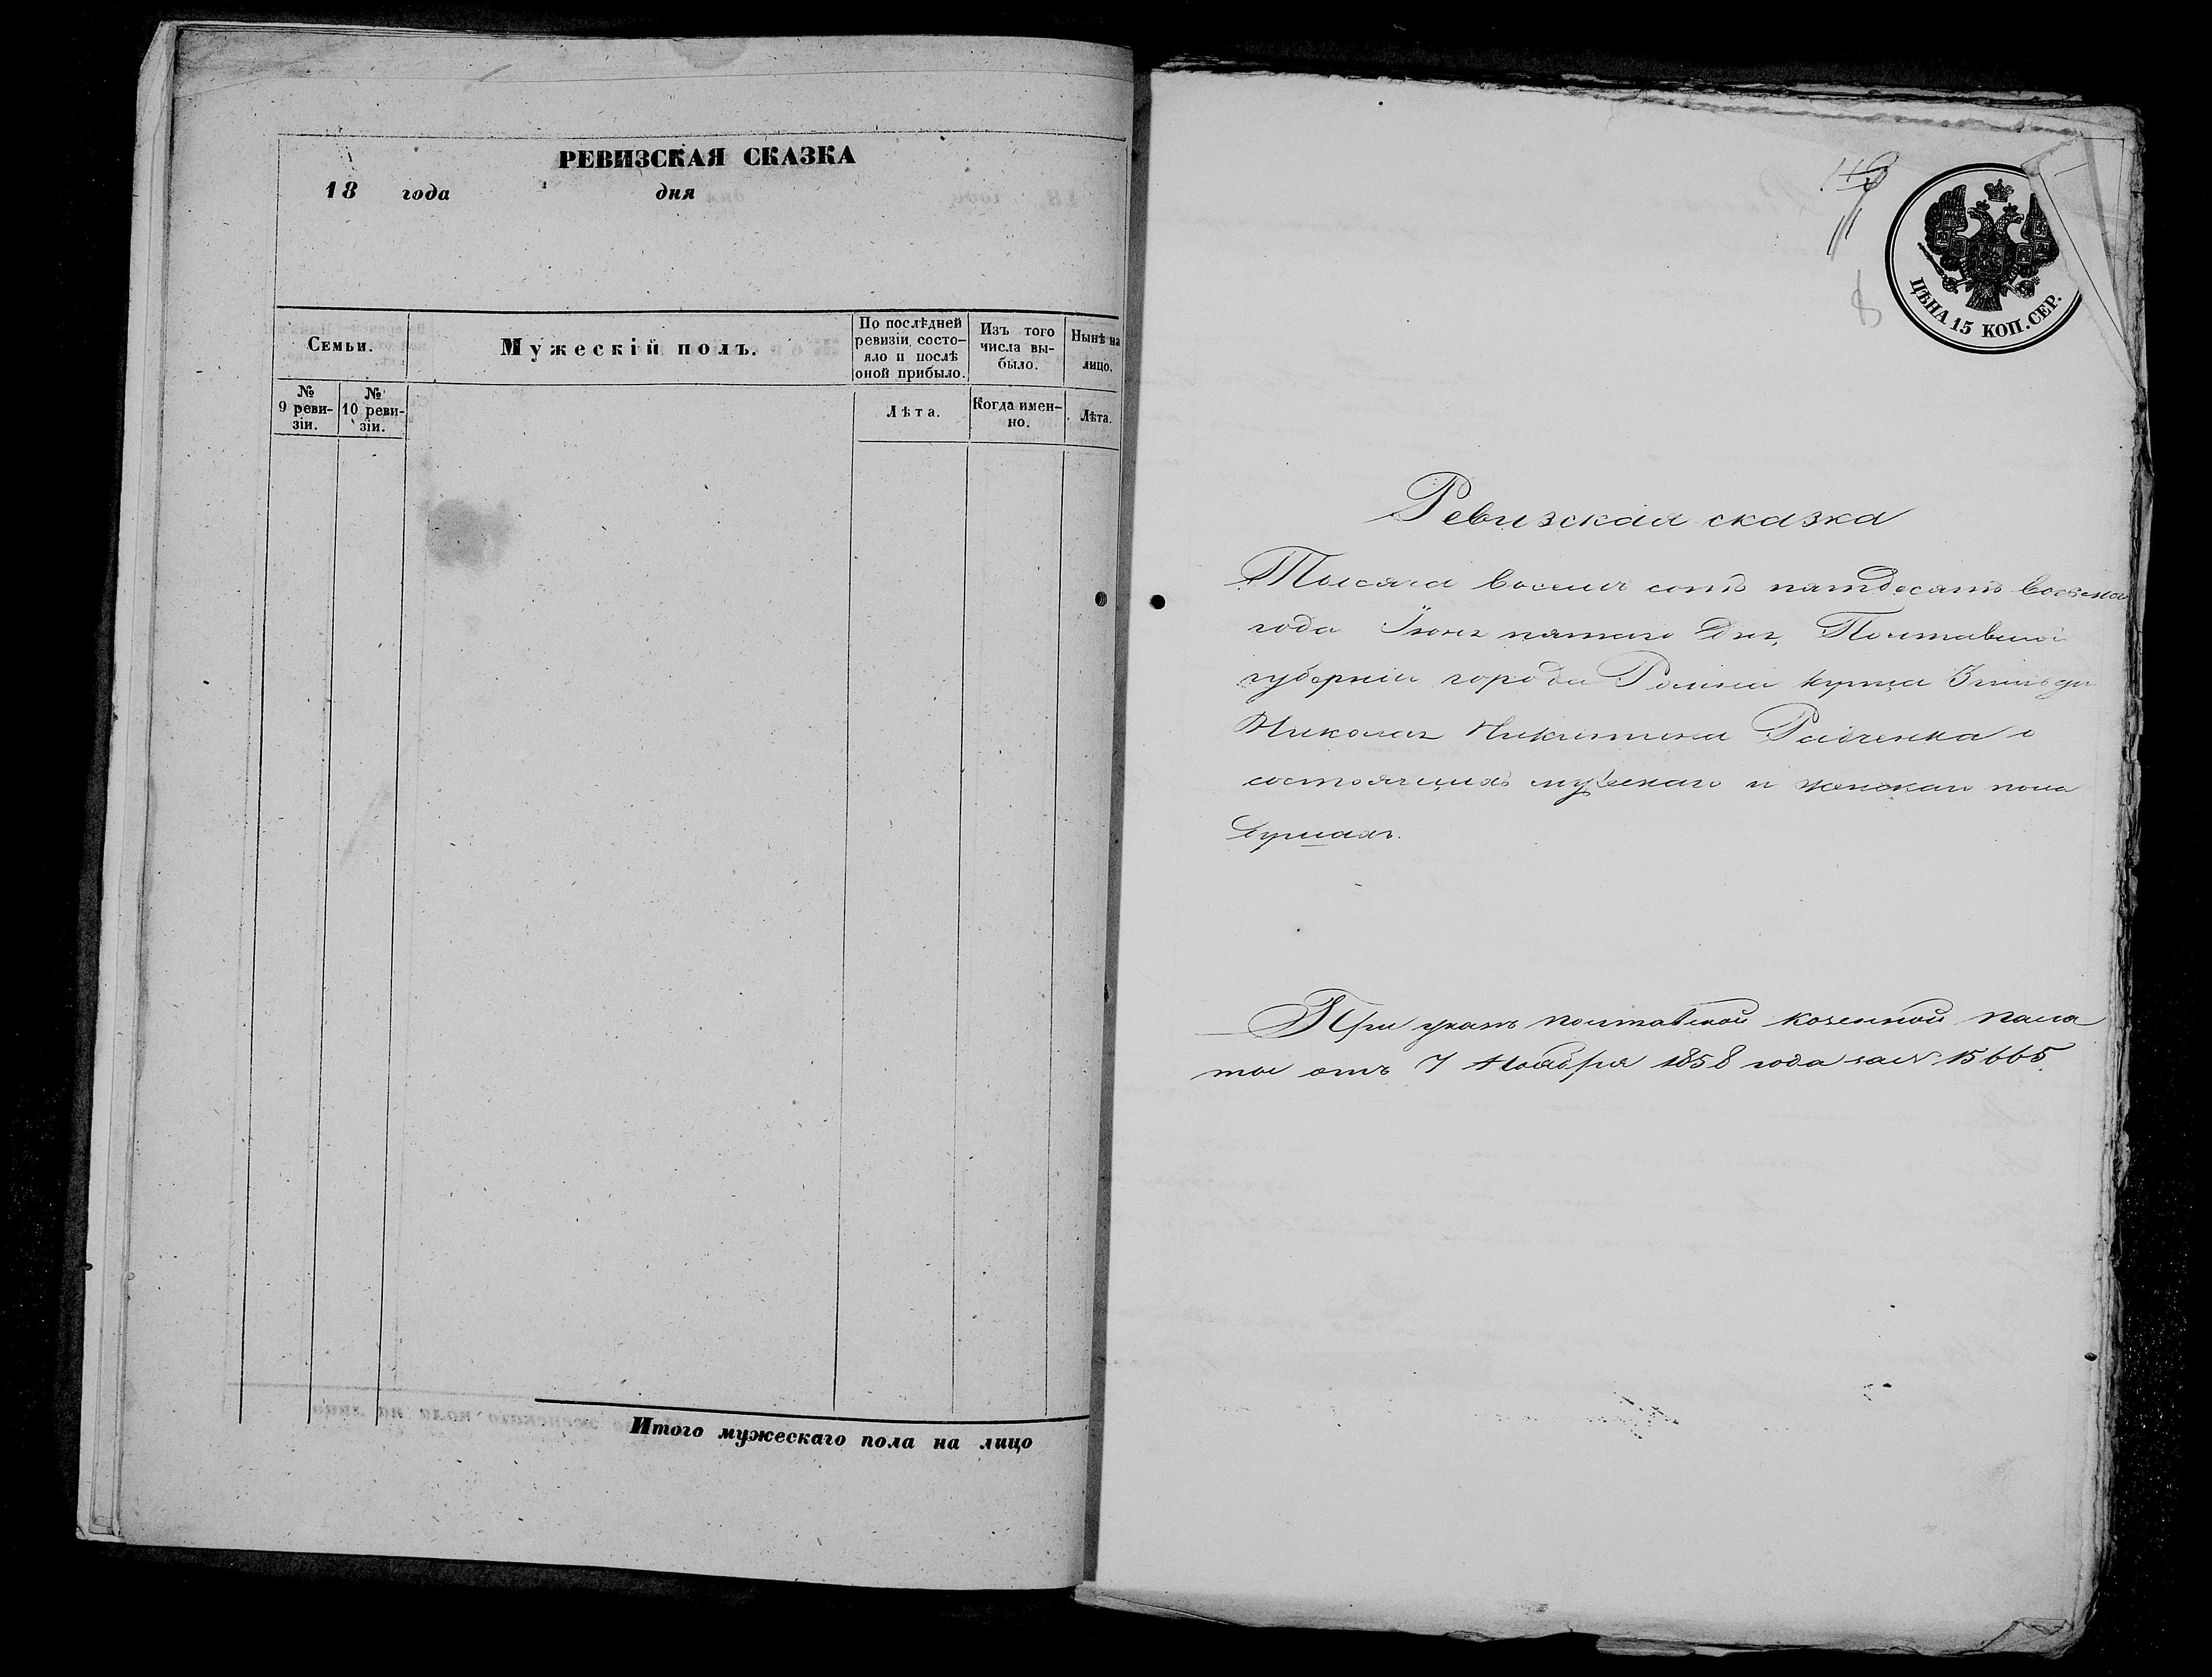 РЕВИЗСКАЯ СКАЗКА
18 года дня
Семьи.
Мужескій полъ.
По послѣдней ревизіи состо-
яло и послѣ
оной прибыло.
Изъ того
числа вы-
было.
Нынѣ на
лицо.
№
9 реви-
зіи.
№
10 реви-
зіи.
Лѣта.
Когда имен-
но.
Лѣта.
Итого мужескаго пола на лицо
8
ЦѢНА 15 КОП. СЕР.
Ревизская сказка
Тысяча восемь сотъ пятдесятъ восьма
года Іюня пятаго дня, Полтавской
губерніи города Ромна купца
Николая Никитина Радченка о
состоящихъ мужскаго и женскаго пола
душахъ.
При указѣ полтавской казенной пала
ты отъ 7 Ноября 1858 года за № 15665.